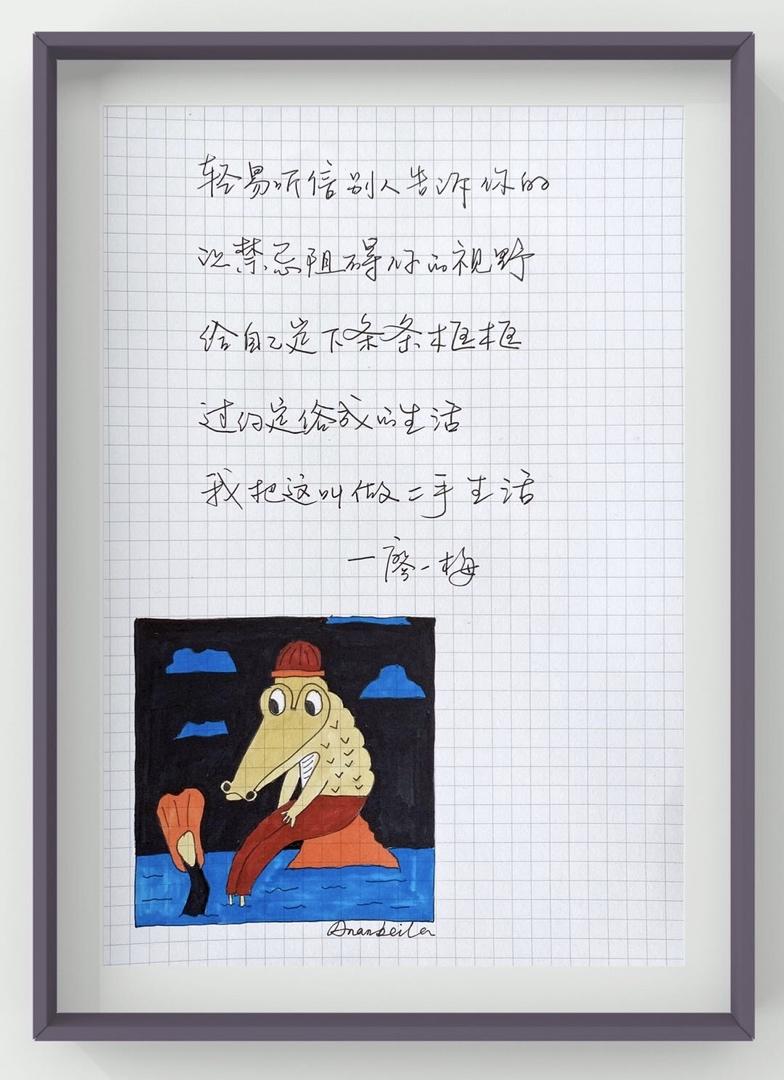 轻易听信别人告诉你的
让禁忌阻碍你的视野
给自己定下条条框框
过约定俗成的生活
我把这叫做二手生活
一廖一梅